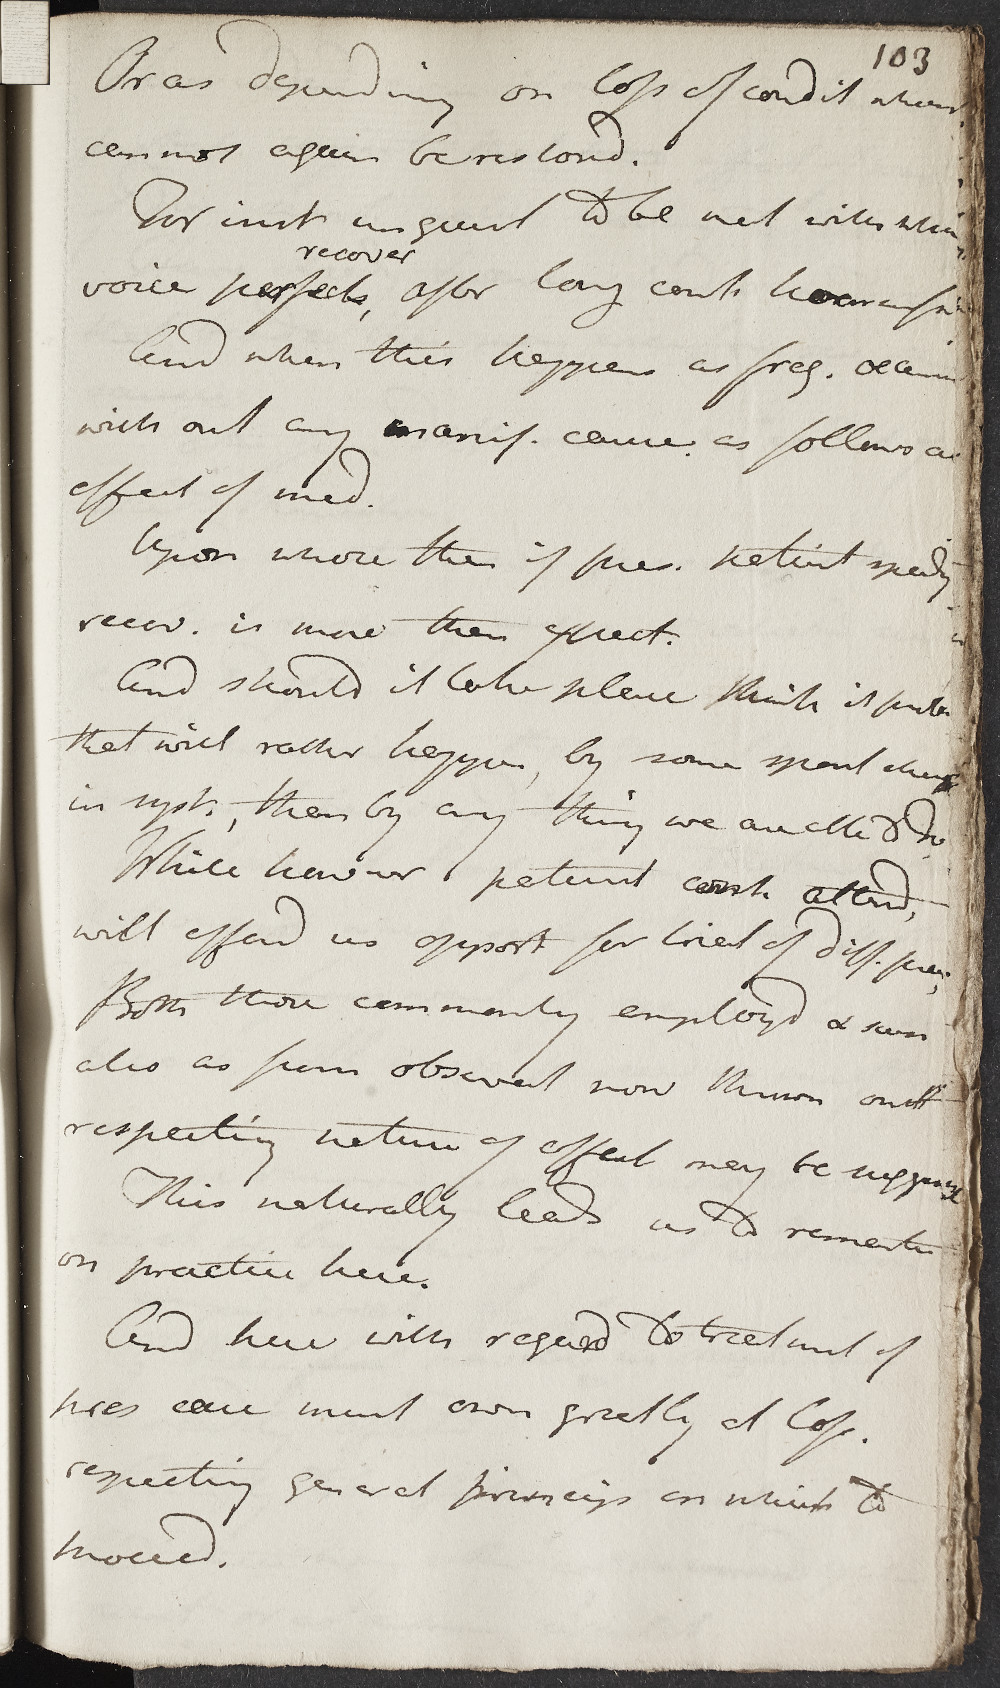 103
Or as depending on loss of condit which
cannot again be restord.
For inst unfrequent to be met with when
recover
voice perfectly, after long cont hoarseness
And when this happens as freq. occurs
with out any manif. cause. as follows as
effect of med.
Upon whole then if pres. patient speedy
recov. is more than expect.
And should it take place think it prob
that will rather happen, by some spont change
in syst., than by any thing we are able to do,
While however patient cont. attend,
will afford us opport for trial of diff. prac,
Both those commonly employd & such
also as from observat now thrown out
respecting nature of affect may be suggest
This naturally leads us to remarks
on practice here.
And here with regard to treatment of
pres case must own greatly at loss.
respecting general principles on which to
proceed.